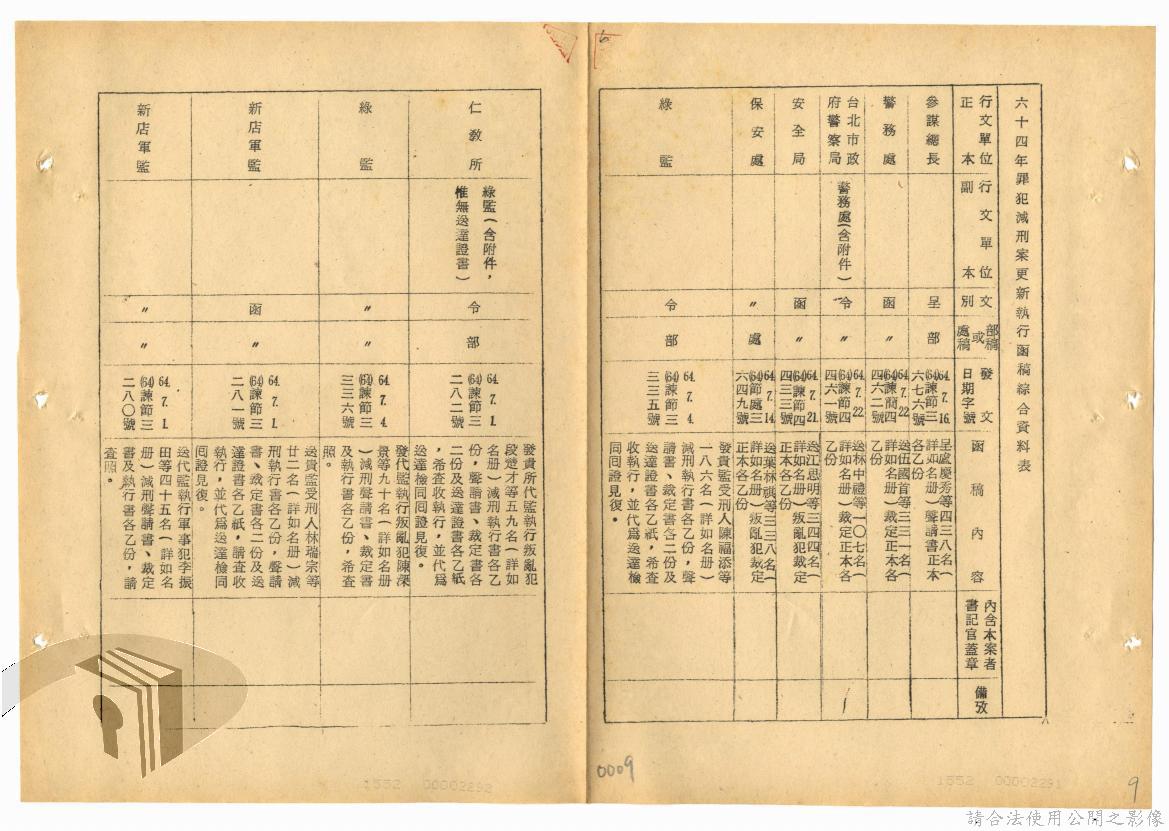 六十四年罪犯減刑案更新執行函稿綜合資料表
行文單位
正本
行文單位
副本
文別
部稿
或
處稿
發文
日期字號
函稿內容
內含本案者
書記官蓋章
備攷
參謀總長
呈
部
64. 7. 16.
(64)諫節三
六七六號
呈處慶秀等四三八名(
詳如名册)聲請書正本
各乙份
警務處
函
〃
64. 7. 22
(64)諫簡四
四六二號
送伍國首等三三一名(
詳如名册)裁定正本各
乙份
台北市政
府警察局
警務處(含附件)
令
〃
64. 7. 22
(64)諫節四
四六一號
送林中禮等一〇七名(
詳如名册)裁定正本各
乙份
安全局
函
〃
64. 7. 21.
(64)諫節四
四三三號
送江思明等三四四名(
詳如名册)叛亂犯裁定
正本各乙份
保安處
〃
處
64. 7. 14.
(64)節處三
六四九號
送葉林祺等三三八名(
詳如名册)叛亂犯裁定
正本各乙份
綠監
令
部
64. 7. 4.
(64)諫節三
三三五號
發貴監受刑人陳福添等
一八六名(詳如名册)
減刑執行書各乙份,聲
請書、裁定書各二份及
送達證書各乙紙,希查
收執行,並代爲送達檢
同囘證見復。
仁教所
綠監(含附件,
惟無送達證書)
令
部
64. 7. 1.
(64)諫節三
二八二號
發貴所代監執行叛亂犯
段楚才等五九名(詳如
名册)減刑執行書各乙
份,聲請書、裁定書各
二份及送達證書各乙紙
,希查收執行,並代爲
送達檢同囘證見復。
綠監
〃
〃
64. 7. 4.
(64)諫節三
三三六號
發代監執行叛亂犯陳深
景等九十名(詳如名册
)減刑聲請書、裁定書
及執行書各乙份,希查
照。
新店軍監
函
〃
64. 7. 1.
(64)諫節三
二八一號
送貴監受刑人林瑞宗等
廿二名(詳如名册)減
刑執行書各乙份,聲請
書、裁定書各二份及送
達證書各乙紙,請查收
執行,並代爲送達檢同
囘證見復。
新店軍監
〃
〃
64. 7. 1.
(64)諫節三
二八〇號
送代監執行軍事犯李振
田等四十五名(詳如名
册)減刑聲請書、裁定
書及執行書各乙份,請
查照。
0009
9
1552 00002291
1552 00002292
請合法使用公開之影像